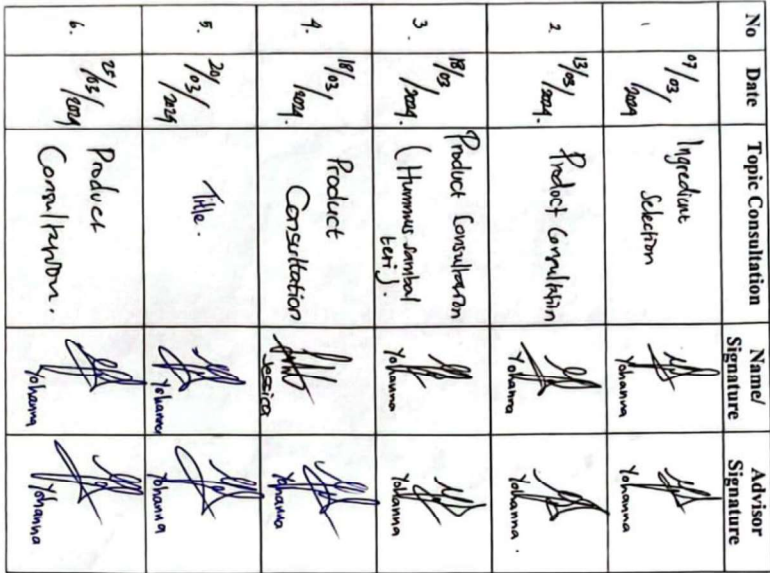 No Date Topic Consultation Name/ Signature Advisor Signature
1 07/03/2024 Ingredient Selection Yohanna Yohanna
2 13/03/2024. Product Consultation Yohanna Yohanna.
3. 18/03/2024. Product Consultation (Hummus sambal teri). Yohanna Yohanna
4. 18/03/2024. Product Consultation Jessica Yohanna
5. 20/03/2024 Title. Yohanna Yohanna
6. 25/03/2024 Product Consultation. Yohanna Yohanna